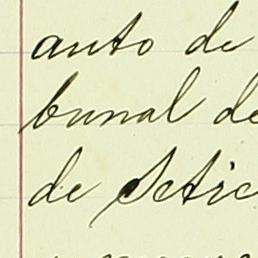 auto de
bunal de
de Setie